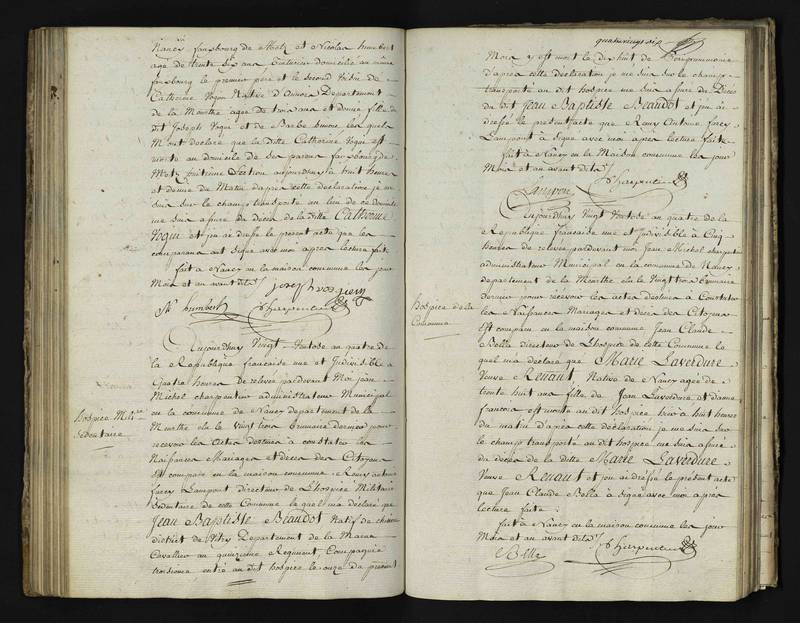 Nancy fauxbourg de Metz et Nicolas humbert
agé de trente six ans Cultivateur domicilié au même
fauxbourg le premier pere et le second voisin de
Catherine Voquy Native d'Annois Departement
de la Meurthe agée de trois ans et demie fille du
dit Joseph Voquy et de Barbe les quels
M'ont declaré que la ditte Catherine Voquy est
morte au domicile de ses parens fauxbourg de
Metz huitieme Section aujourdhuy à huit heures
et demie du Matin d'après cette declaration je me
suis sur le champ transporté au lieu de ce domicile
me suis assuré du décès de la ditte Catherine
Voquy et j'en ai dressé le present acte que les
comparans ont signé avec moi après lecture faite
fait à Nancy en la maison commune les jour
Mois et an avant dits
joseph
N humbert Charpentier
Aujourdhuy vingt Ventose an quatre de
la Republique francaise une et Indivisible à
Quatre heures de relevée pardevant Moi jean
Michel charpentier administrateur Municipal
en la commune de Nancy departement de la
Meurthe élu le vingt trois brumaire dernier pour
recevoir les Actes destinés à constater les
Naissances Mariages et décès des Citoyens
Est comparu en la maison commune Remy antoine
furcy Lampont directeur de L'hospice Militaire
Sedentaire de cette Commune le quel m'a declaré que
Jean Baptiste Beaudot Natif de
district de Vitry Departement de la Marne
Cavallier au quinzieme Regiment, Compagnie
troisieme entré au dit hospice le onze du présent
hospice Milre
Sédentaire
quatrevingt six
Mois y est mort le dix huit de
d'après cette declaration je me suis sur le champ
transporté au dit hospice me suis assuré du Décès
du dit Jean Baptiste Beaudot et j'en ai
dressé le présent acte que Remy Antoine furcy
Lampont à signé avec moi après lecture faite
fait à Nancy en la Maison commune les jour
Mois et an avant dits
Lampont Charpentier
Aujourdhuy Vingt Ventose an quatre de la
Republique francaise une et indivisible à Cinq
heures de relevée pardevant moi Jean Michel charpentier
administrateur Municipal en la commune de Nancy
departement de la Meurthe élu le Vingt trois brumaire
dernier pour recevoir les actes destinés à Constater
les Naissances Mariages et décès des Citoyens
Est comparu en la maison commune Jean Claude
Bella directeur de L'hospice de cette Commune le
quel m'a declaré que Marie Laverdure
Veuve Renaut, Native de Nancy agée de
trente huit ans fille de Jean Laverdure et d'anne
francois est morte au dit hospice hier à huit heures
du matin d'après cette déclaration je me suis sur
le champ transporté au dit hospice me suis assuré
du décès de la ditte Marie Laverdure
Veuve Renaut et j'en ai dressé le présent acte
que Jean Claude Bella à signé avec moi après
lecture faite
fait à Nancy en la maison commune les jour
Mois et an avant dits
Bella Charpentier
hospice de la
Commune